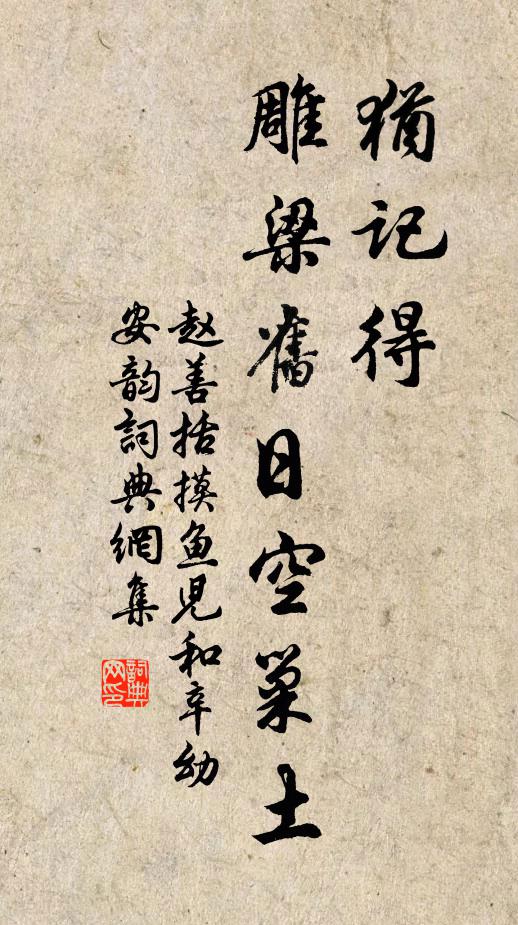 猶記得
雕梁舊日空巢土
赵善括摸魚児和辛幼
安韵詞典網集
詞典
网印